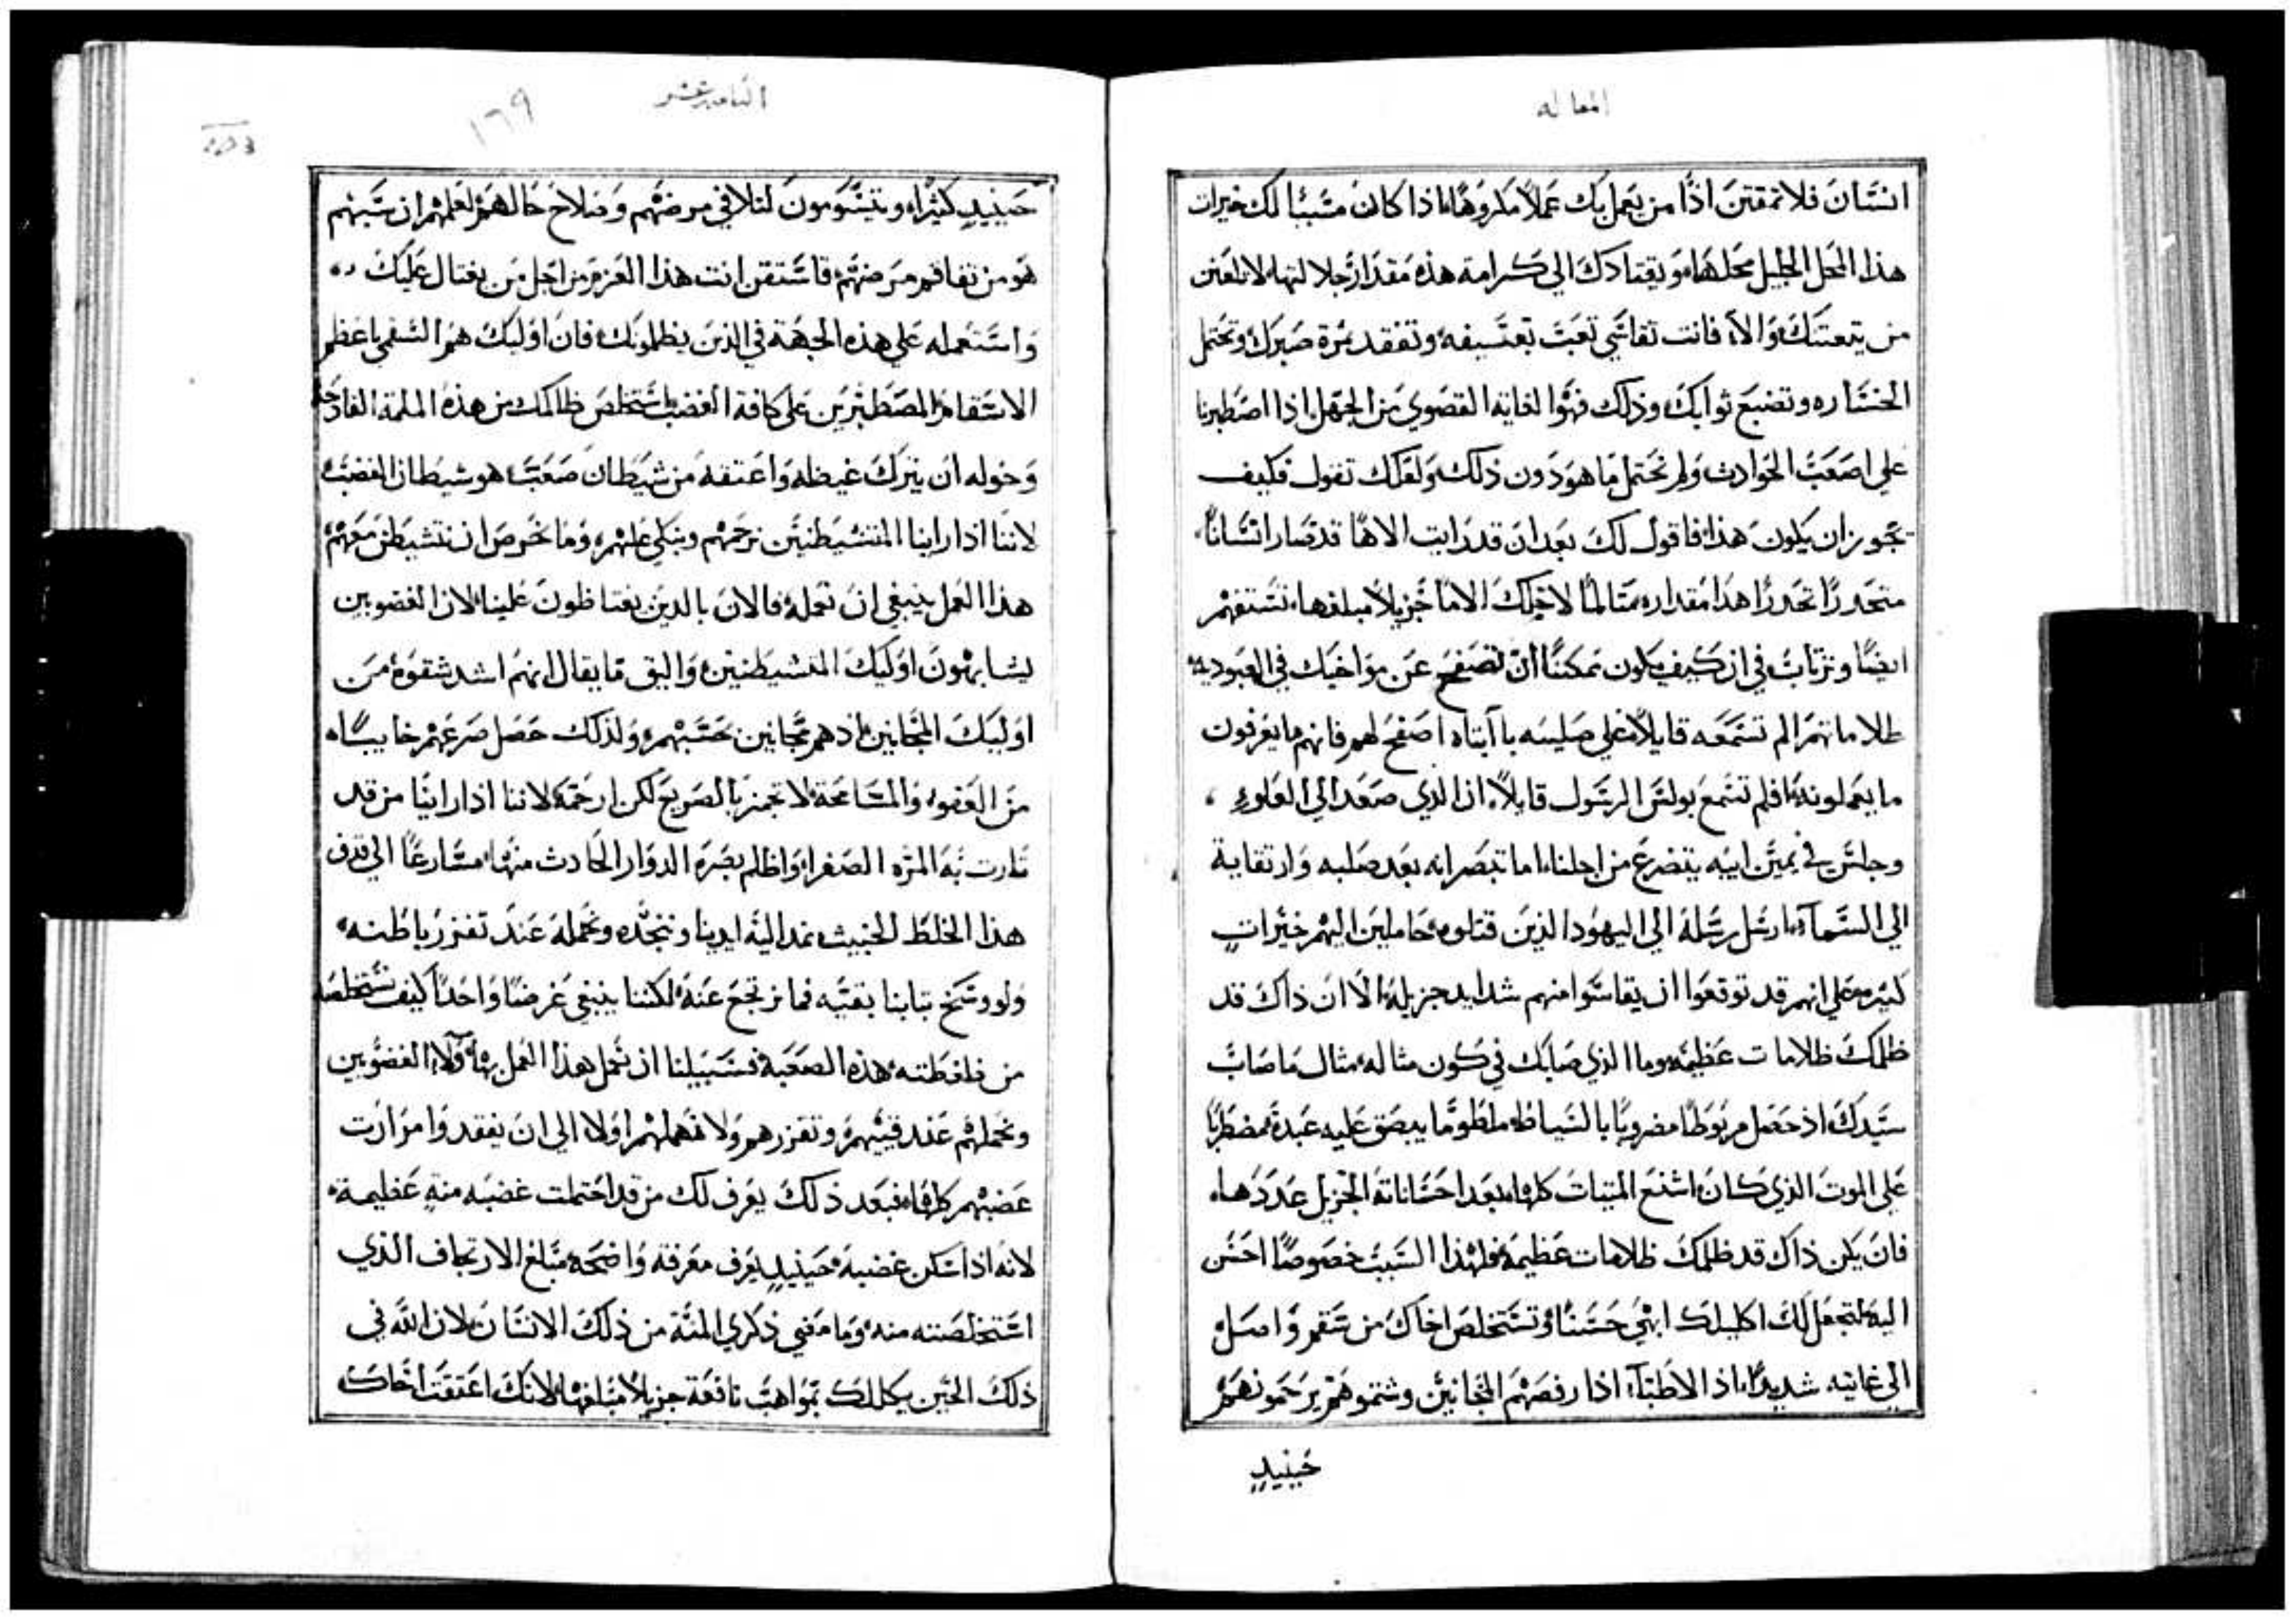 المقاله
انسَان فلا تمقتنَ اذًا من يعَمل بك عَملاً مكروهًا اذا كانَ مسَببًا لك خيرات
هذا المحَل الجليل محَلهَا ويقتادك الي كرامة هذه مقدار جلالتها لا تلعَن
من يتعتكَ والا فانت تقاسَي تعَبَ تعسَيفه وتفقد ثمرة صَبرك وتحتمل
الخسَاره وتضيع ثوابك وذلك فهَو الغاية القصَوي منَ الجهَل اذا اصَطبرنا
علي اصَعَب الحوادث ولم نحتمل مَا هوَ دَون ذلك ولعَلك تقول فكيف
يجَوز ان يكون هَذا فاقول لكَ بعَد انَ قد رَايت الاهًا قد صَار انسَانًا
متحَدرًا تحَدرًا هذا مقداره متالمًا لاجَلكَ الامًا جَزيلاً مبلغها تستفهم
ايضًا وترتابُ في ان كيف يكون ممكنًا ان تصَفح عَن مواخيك في العَبوديه
ظلاماتهم الم تسَمَعَه قايلاً علي صَليبه يا آبتاه اصَفح لهم فانهم ما يعَرفون
ما يعَملونه افلم تسَمعَ بولسَ الرسَول قايلاً ان الذي صَعَد الي العَلو
وجلسَ في يمَين ابيه يتضرعَ من اجلنا اما تبصَر انه بعَد صَلبه وارتقايه
الي السَمآء ارسَل رسَلهَ الي اليهَود الذينَ قتلوه حَاملين اليهم خيَرات
كثيره علي انهم قد توقعَوا ان يقاسَوا منهم شدايد جزيله الا انَ ذاكَ قد
ظلمكَ ظلامات عَظيمَه وما الذي صَابك في كون مثاله مثال مَا صَابَ
سَيَدكَ اذ حَصَل مربَوطًا مضروبًا بالسَياط ملطومًا يبصَق عَليه عَبدهَ مصطبرًا
عَلي الموتَ الذي كانَ اشنعَ الميتات كلها بعَد احسَاناتهَ الجَزيل عَددَهَا
فانَ يكن ذاكَ قد ظلمكَ ظلامات عَظيمَه فلهَذا السَبب خصَوصًا احسَن
اليه لتجعَل لكَ اكليلك ابهَي حَسَنًا وتسَتخلصَ اخاكَ من سَقم واصَلَ
الي غايته شديدًا اذ الاطبَآء اذا رفصَهم المجَانين وشتموهَم يرحَمونهَم
حَينيدٍ
الثامنه عشر
١٦٩
حَينيدٍ كثيرًا ويتشَومونَ لتلافي مرضَهم وصَلاح حَالهَم لعَلمهَم ان سَبهم
هَو من تفاقم مرَضهَم فاسَتقن انت هذا العَزم من اجَل من يغتال عَليكَ
واسَتعَمله عَلي هذه الجهَة في الذينَ يظلمونك فانَ اوليكَ هم السَقمي باعَظم
الاسَقام المصَطبرَين عَلي كافة الغضب استخلصَ ظالمك من هَذه الملمة الفادحَة
وخوله ان يترَكَ غيظه واعَتقهَ من شيَطانَ صَعَب هو شيطان الغضبَ
لاننا اذا راينا المتشَيطنيَن نرحَمهم ونبكي عَليهم ومَا نحَرصَ ان نتشيطنَ معَهم
هذا العَمل ينبغي انَ نعَمله فالانَ بالدينَ يغتاظونَ عَلينا لان الغضوبين
يشابهونَ اوليكَ المتشيطنين واليق مَا يقال انهم اشد شقوَة منَ
اوليَكَ المجَانين اذ هم مجَانين بحَسَبهم ولذلك حَصَل صَرعَهم خايبًا
منَ العَفو والمسَامحَة لا تجمز بالصَريحَ لكن ارحَمَه لاننا اذا راينَا من قد
ثارت بَه المرَه الصَفرا واظلم بصَرَه الدوَار الحَادث منهَا مسَارعًا الي قذف
هذا الخلطَ الخبيث نمد اليَه ايدينا وننجَده ونحَمله عَندَ تفزز باطَنه
ولو وسَخ تيابنا بقيَه فما نرتجعَ عَنه لكننا ينبغي غرضًا واحَدًا كيف نستخلصَه
من ظغطته هذه الصَعَبة فسَبيلنا ان نعَمل هذا العَمل بهَاولآء الغضوبين
ونحَملهم عَند قييهم وتقززهم ولا نهَملهم اولا الي انَ يفقدوا مرَارَت
غضبهم كلهَا فبعَد ذلكَ يعَرف لك من قد احَتملت غضبَه منةٍ عَظيمة
لانَه اذا سَكن غضبهَ حَينيدٍ يعَرف معَرفة واضحَه مبَلغ الارتجاف الذي
اسَتخلصَته منه ومَا معَني ذكري المنَة من ذلكَ الانسَان لان اللَه في
ذلكَ الحَين يكللكَ بمَواهبَ نافعَة جزيلاً مبَلغهَا لانكَ اعَتقتَ اخَاكَ